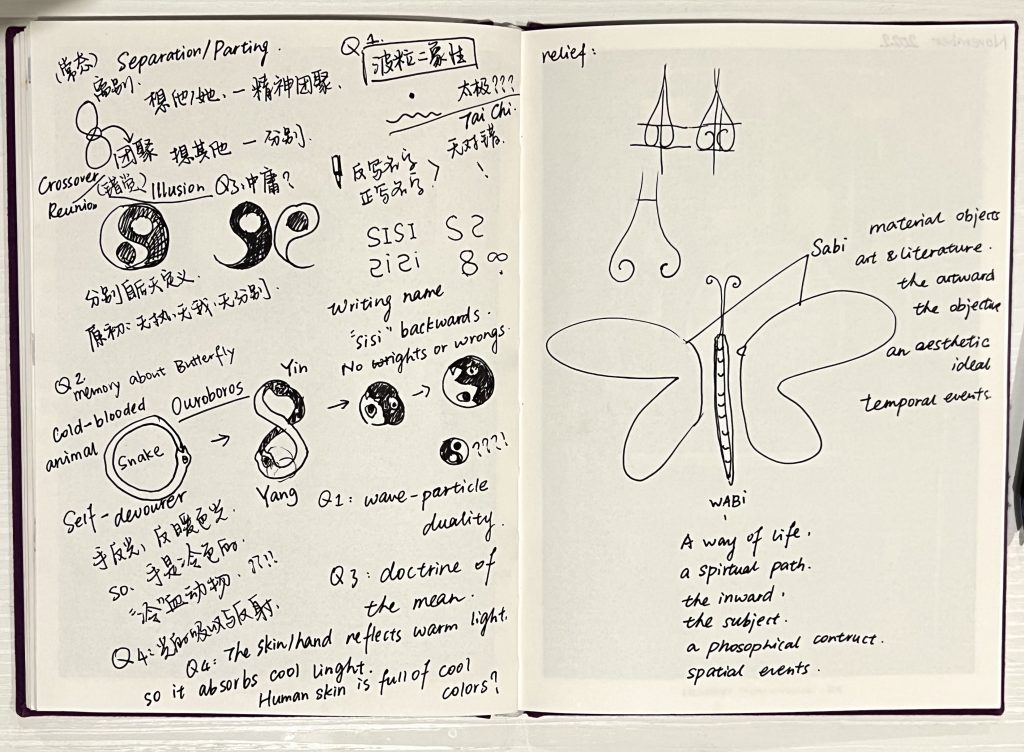 (常态) Separation/Parting.
离别.
想他/她. — 精神团聚.
团聚 想其他 — 分别.
Crossover
Reunion
(错觉) Illusion Q3.中庸?
分别自后天定义.
原初: 无执、无我、无分别.
Q1.
波粒二象性
太极???
Tai Chi.
无对错.
!
反写名字
正写名字 >
SISI S2
sisi 8 ∞
Writing name
"sisi" backwards.
No rights or wrongs.
Q2.
memory about Butterfly
cold-blooded
animal
Ouroboros
Snake
Self-devourer
→
Yin
Yang
→
→
???!
手反光, 反暖色光.
so. 手是冷色的.
"冷"血动物. ??!!
Q4: 光的吸收与反射.
Q1: wave-particle
duality.
Q3: doctrine of
the mean.
Q4: The skin/hand reflects warm light.
so it absorbs cool linght.
Human skin is full of cool
colors?
November 2022
relief:
Sabi
material objects
art & literature.
the outward
the objective
an aesthetic
ideal
temporal events.
WABi
A way of life.
a spirtual path.
the inward.
the subject.
a phosophical contruct.
spatial events.